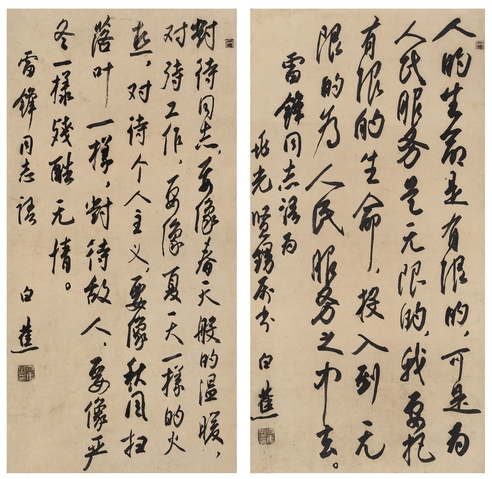 人的生命是有限的，可是为
人民服务是无限的，我要把
有限的生命，投入到无
限的为人民服务之中去。
雷鋒同志语为
培光贤甥属书 白蕉
對待同志，要像春天般的温暖，
对待工作，要像夏天一樣的火
热，对待个人主义，要像秋风扫
落叶一樣，對待敌人，要像严
冬一樣残酷无情。
雷鋒同志語
白蕉